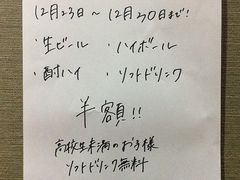 12月23日〜12月30日まで!
・生ビール ・ハイボール
・酎ハイ ・ソフトドリンク
半額!!
高校生未満のお子様
ソフトドリンク無料